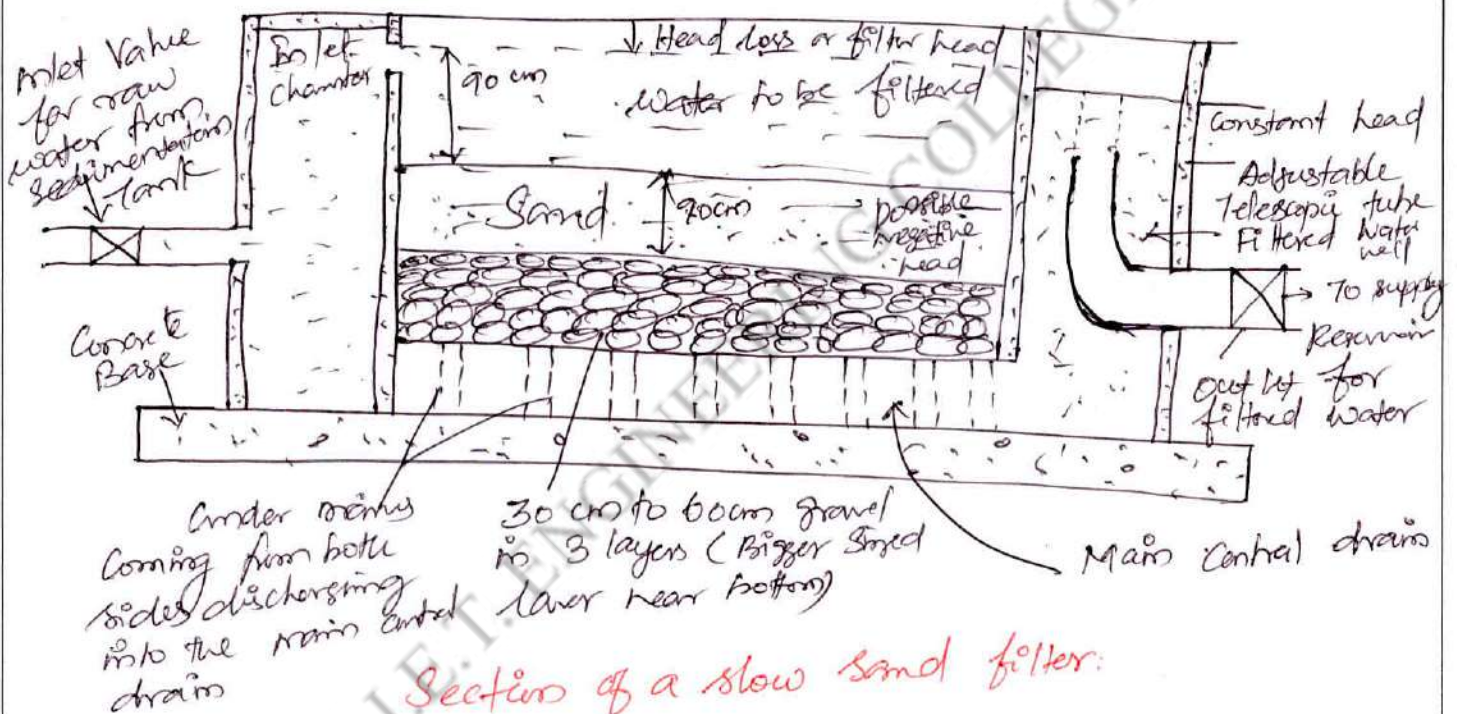 Inlet Valve
for raw
water from
Sedimentation
Tank
Inlet
Chamber
90 cm
Head loss or filter head
Water to be filtered
Sand
90cm
possible
negative
head
Constant head
Adjustable
Telescopic tube
Filtered water
well
To supply
Reservoir
outlet for
filtered water
Concrete
Base
Under
Coming from both
sides discharging
into the main central
drain
30 cm to 60cm gravel
in 3 layers (Bigger sized
layer near bottom)
Main central drain
Section of a slow sand filter:
E.T. ENGINEERING COLLEGE